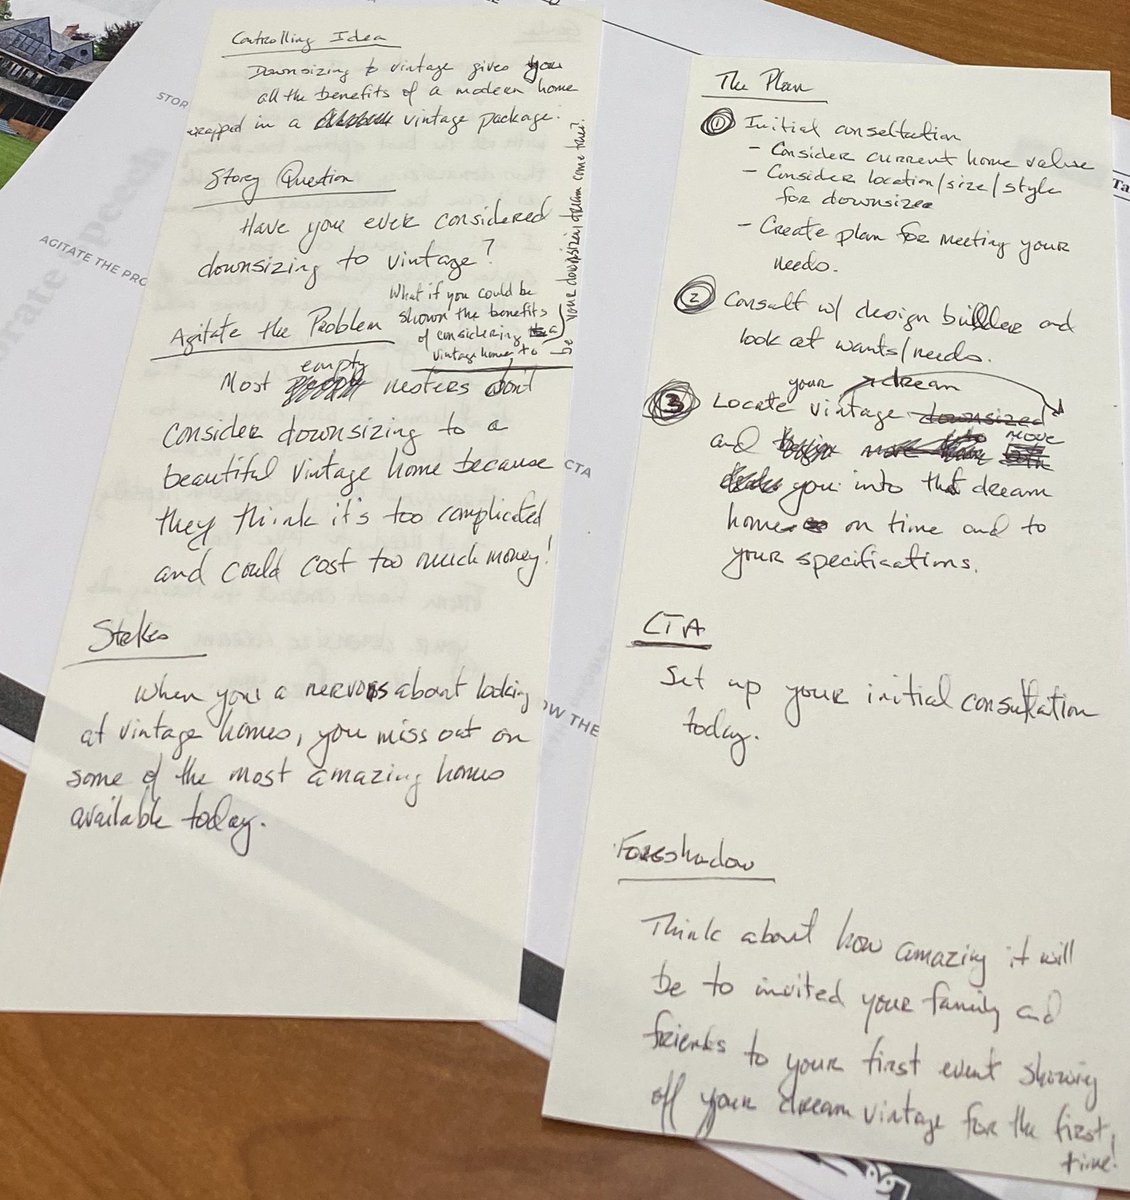 Controlling Idea
Downsizing to vintage gives you
all the benefits of a modern home
wrapped in a vintage package.
Story Question
Have you ever considered
downsizing to vintage?
What if you could be
shown the benefits
of considering a
vintage home to
be your downsized dream come true?
Agitate the Problem
Most empty nesters don't
consider downsizing to a
beautiful vintage home because
they think it's too complicated
and could cost too much money!
Stakes
When you a nervous about looking
at vintage homes, you miss out on
some of the most amazing homes
available today.
The Plan
① Initial consultation
- Consider current home value
- Consider location/size/style
for downsize
- Create plan for meeting your
needs.
② Consult w/ design builder and
look at wants/needs.
③ Locate your vintage dream
and move
you into that dream
home on time and to
your specifications.
CTA
Set up your initial consultation
today.
Foreshadow
Think about how amazing it will
be to invited your family and
friends to your first event showing
off your dream vintage for the first
time!
STOR
AGITATE THE PRO
orate speech
CTA
OW THE
Ta